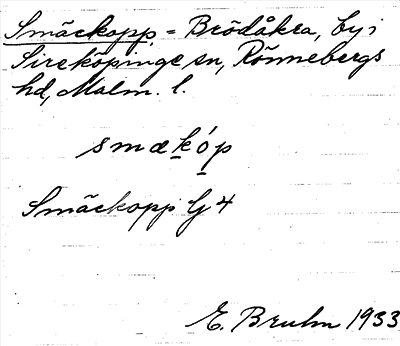 Smäckopp = Brödåkra, by i
Sireköpinge sn, Rönnebergs
hd, Malm. l.
smækóp
Smäckopp G 4
E. Bruhn 1933